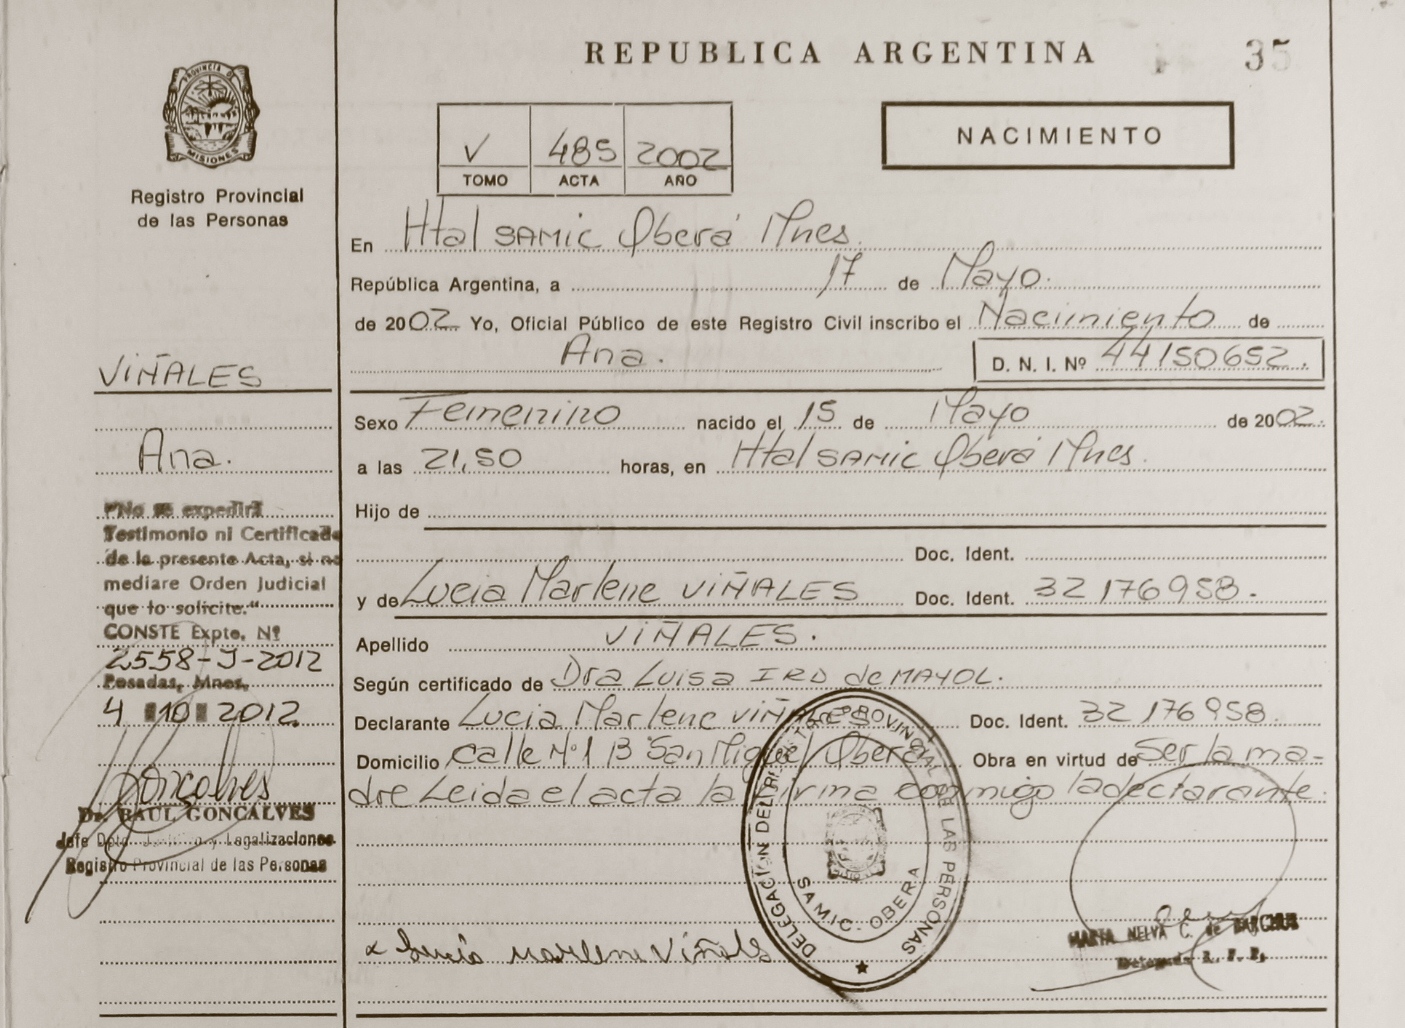 REPUBLICA ARGENTINA 35
PROVINCIA DE
MISIONES
Registro Provincial
de las Personas
V 485 2002
TOMO ACTA AÑO
NACIMIENTO
En Htal SAMIC Oberá Mnes.
República Argentina, a 17 de Mayo.
de 2002 Yo, Oficial Público de este Registro Civil inscribo el Nacimiento de
Ana. D. N. I. Nº 44150652.
VIÑALES
Ana.
Sexo Femenino nacido el 15 de Mayo de 2002.
a las 21,50 horas, en Htal SAMIC Oberá Mnes.
Hijo de
Doc. Ident.
y de Lucia Marlene VIÑALES Doc. Ident. 32176958.
Apellido VIÑALES.
Según certificado de Dra Luisa IRD de MAYOL.
Declarante Lucia Marlene VIÑALES Doc. Ident. 32176958.
Domicilio calle Nº 1 B San Miguel Oberá. Obra en virtud de Ser la ma-
dre Leida el acta la firma conmigo la declarante.
"No se expedirá
Testimonio ni Certificado
de la presente Acta, si no
mediare Orden Judicial
que lo solicite."
CONSTE Expte. Nº
2558-J-2012
Posadas, Mnes.
4 10 2012
Gonçalves
Dr. RAUL GONCALVES
Jefe Dpto. Jurídico y Legalizaciones
Registro Provincial de las Personas
DELEGACION DEL REGISTRO PROVINCIAL DE LAS PERSONAS
SAMIC - OBERA
x Lucia Marlene Viñales
MARIA NELVA C. de
Delegada R. P. P.